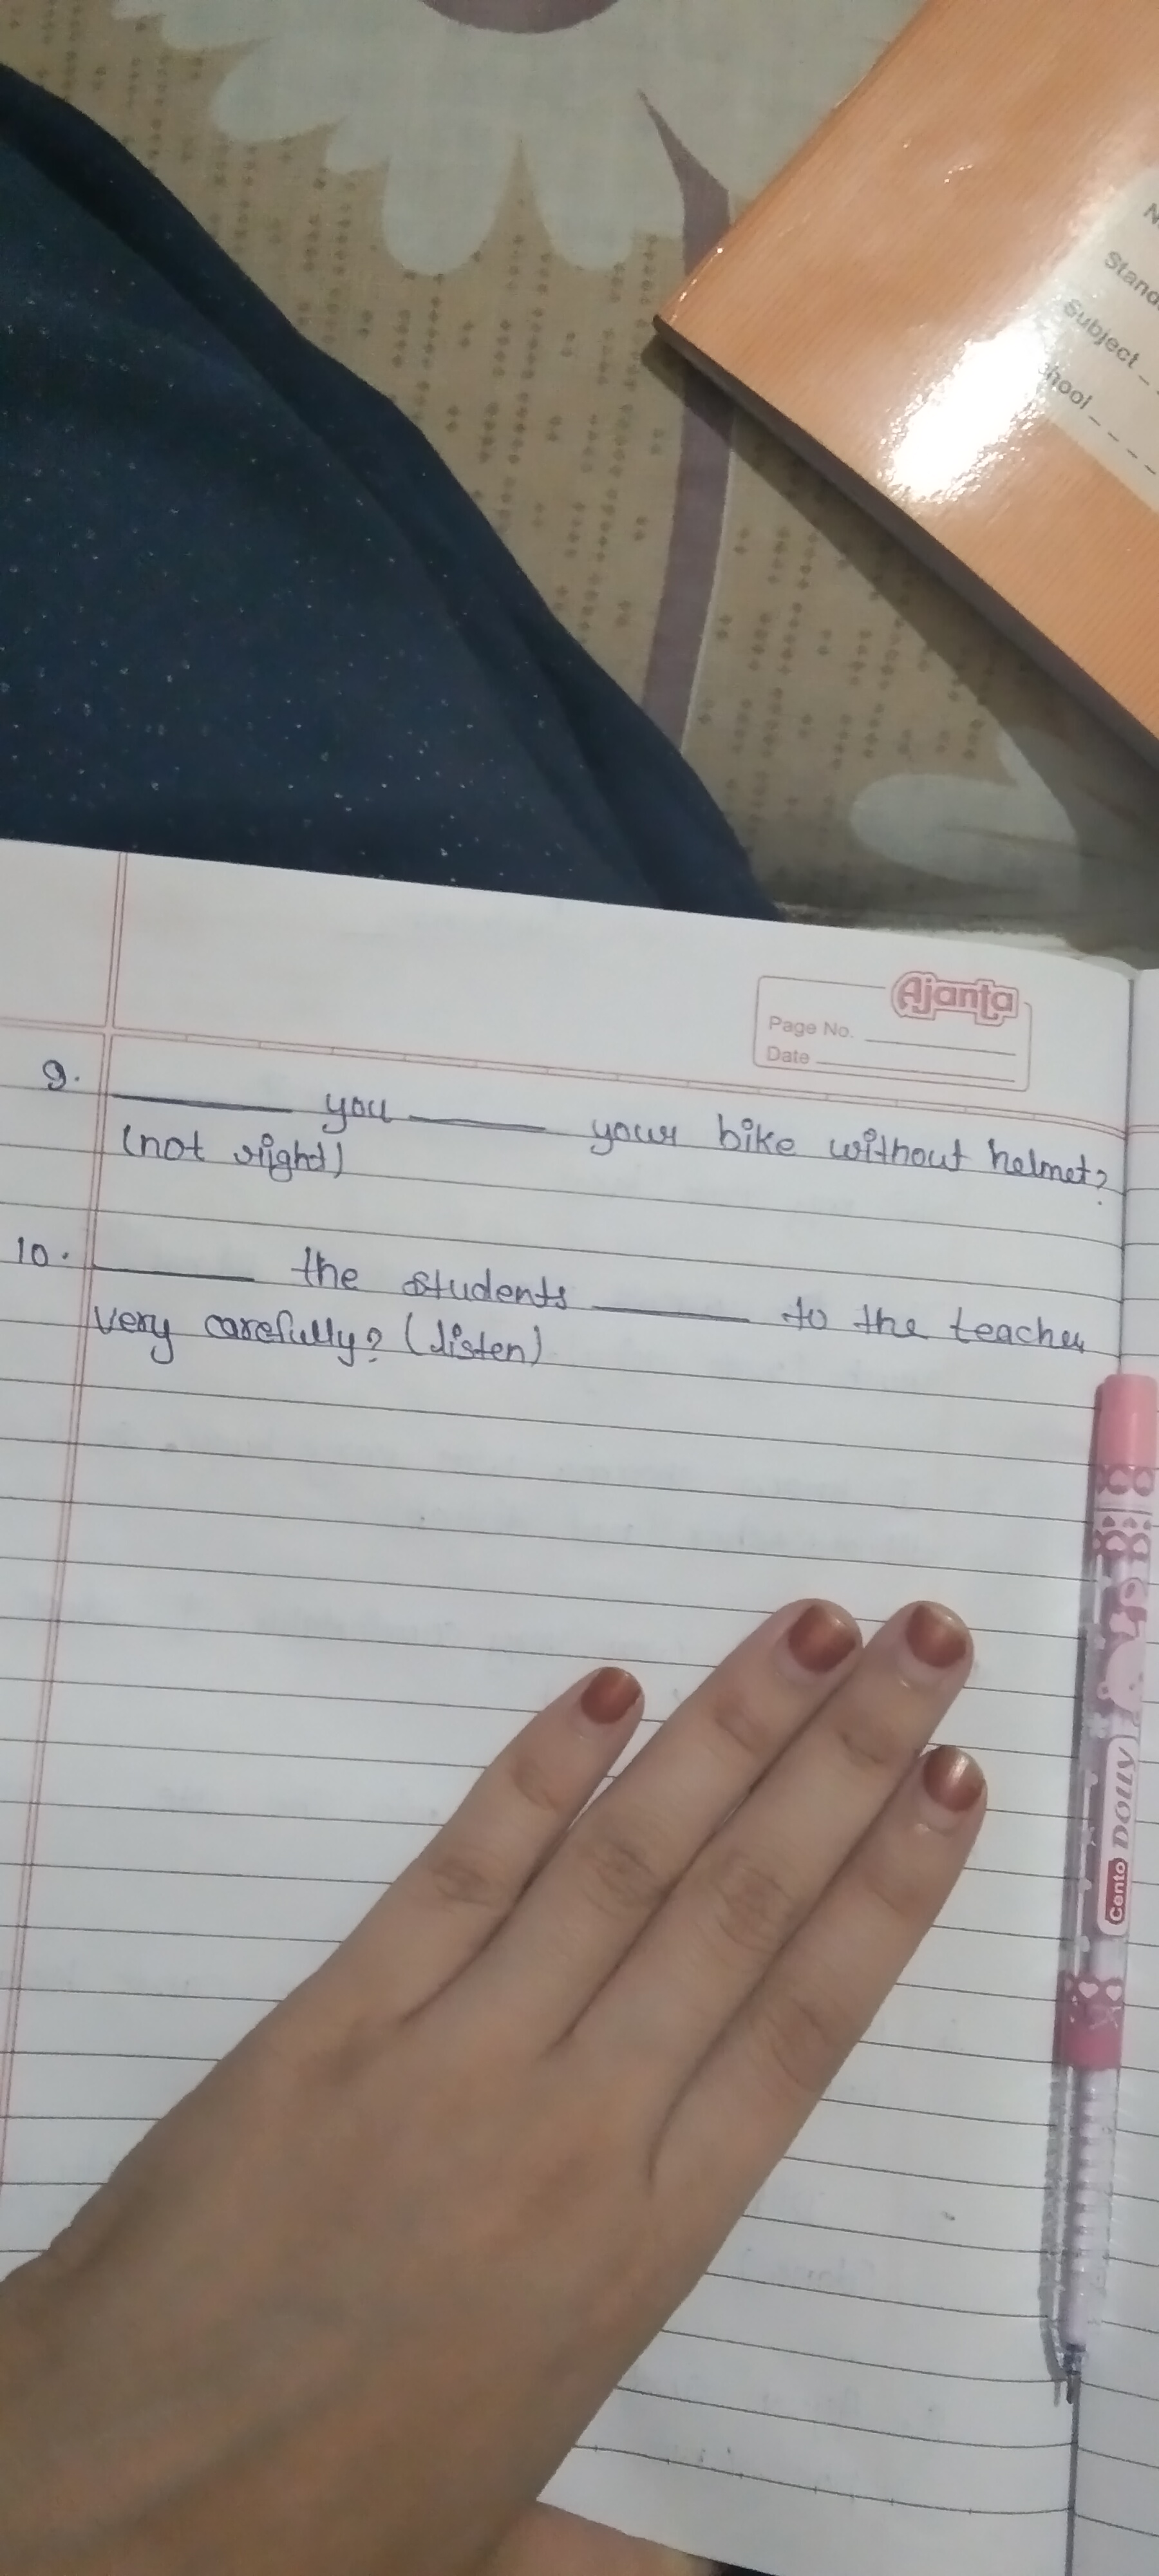 Stand
Subject _ _
hool _ _ _ _
Ajanta
Page No. ________
Date ________
9. ________ you ________ your bike without helmet?
(not right)
10. ________ the students ________ to the teacher
very carefully? (listen)
Cento DOLLY